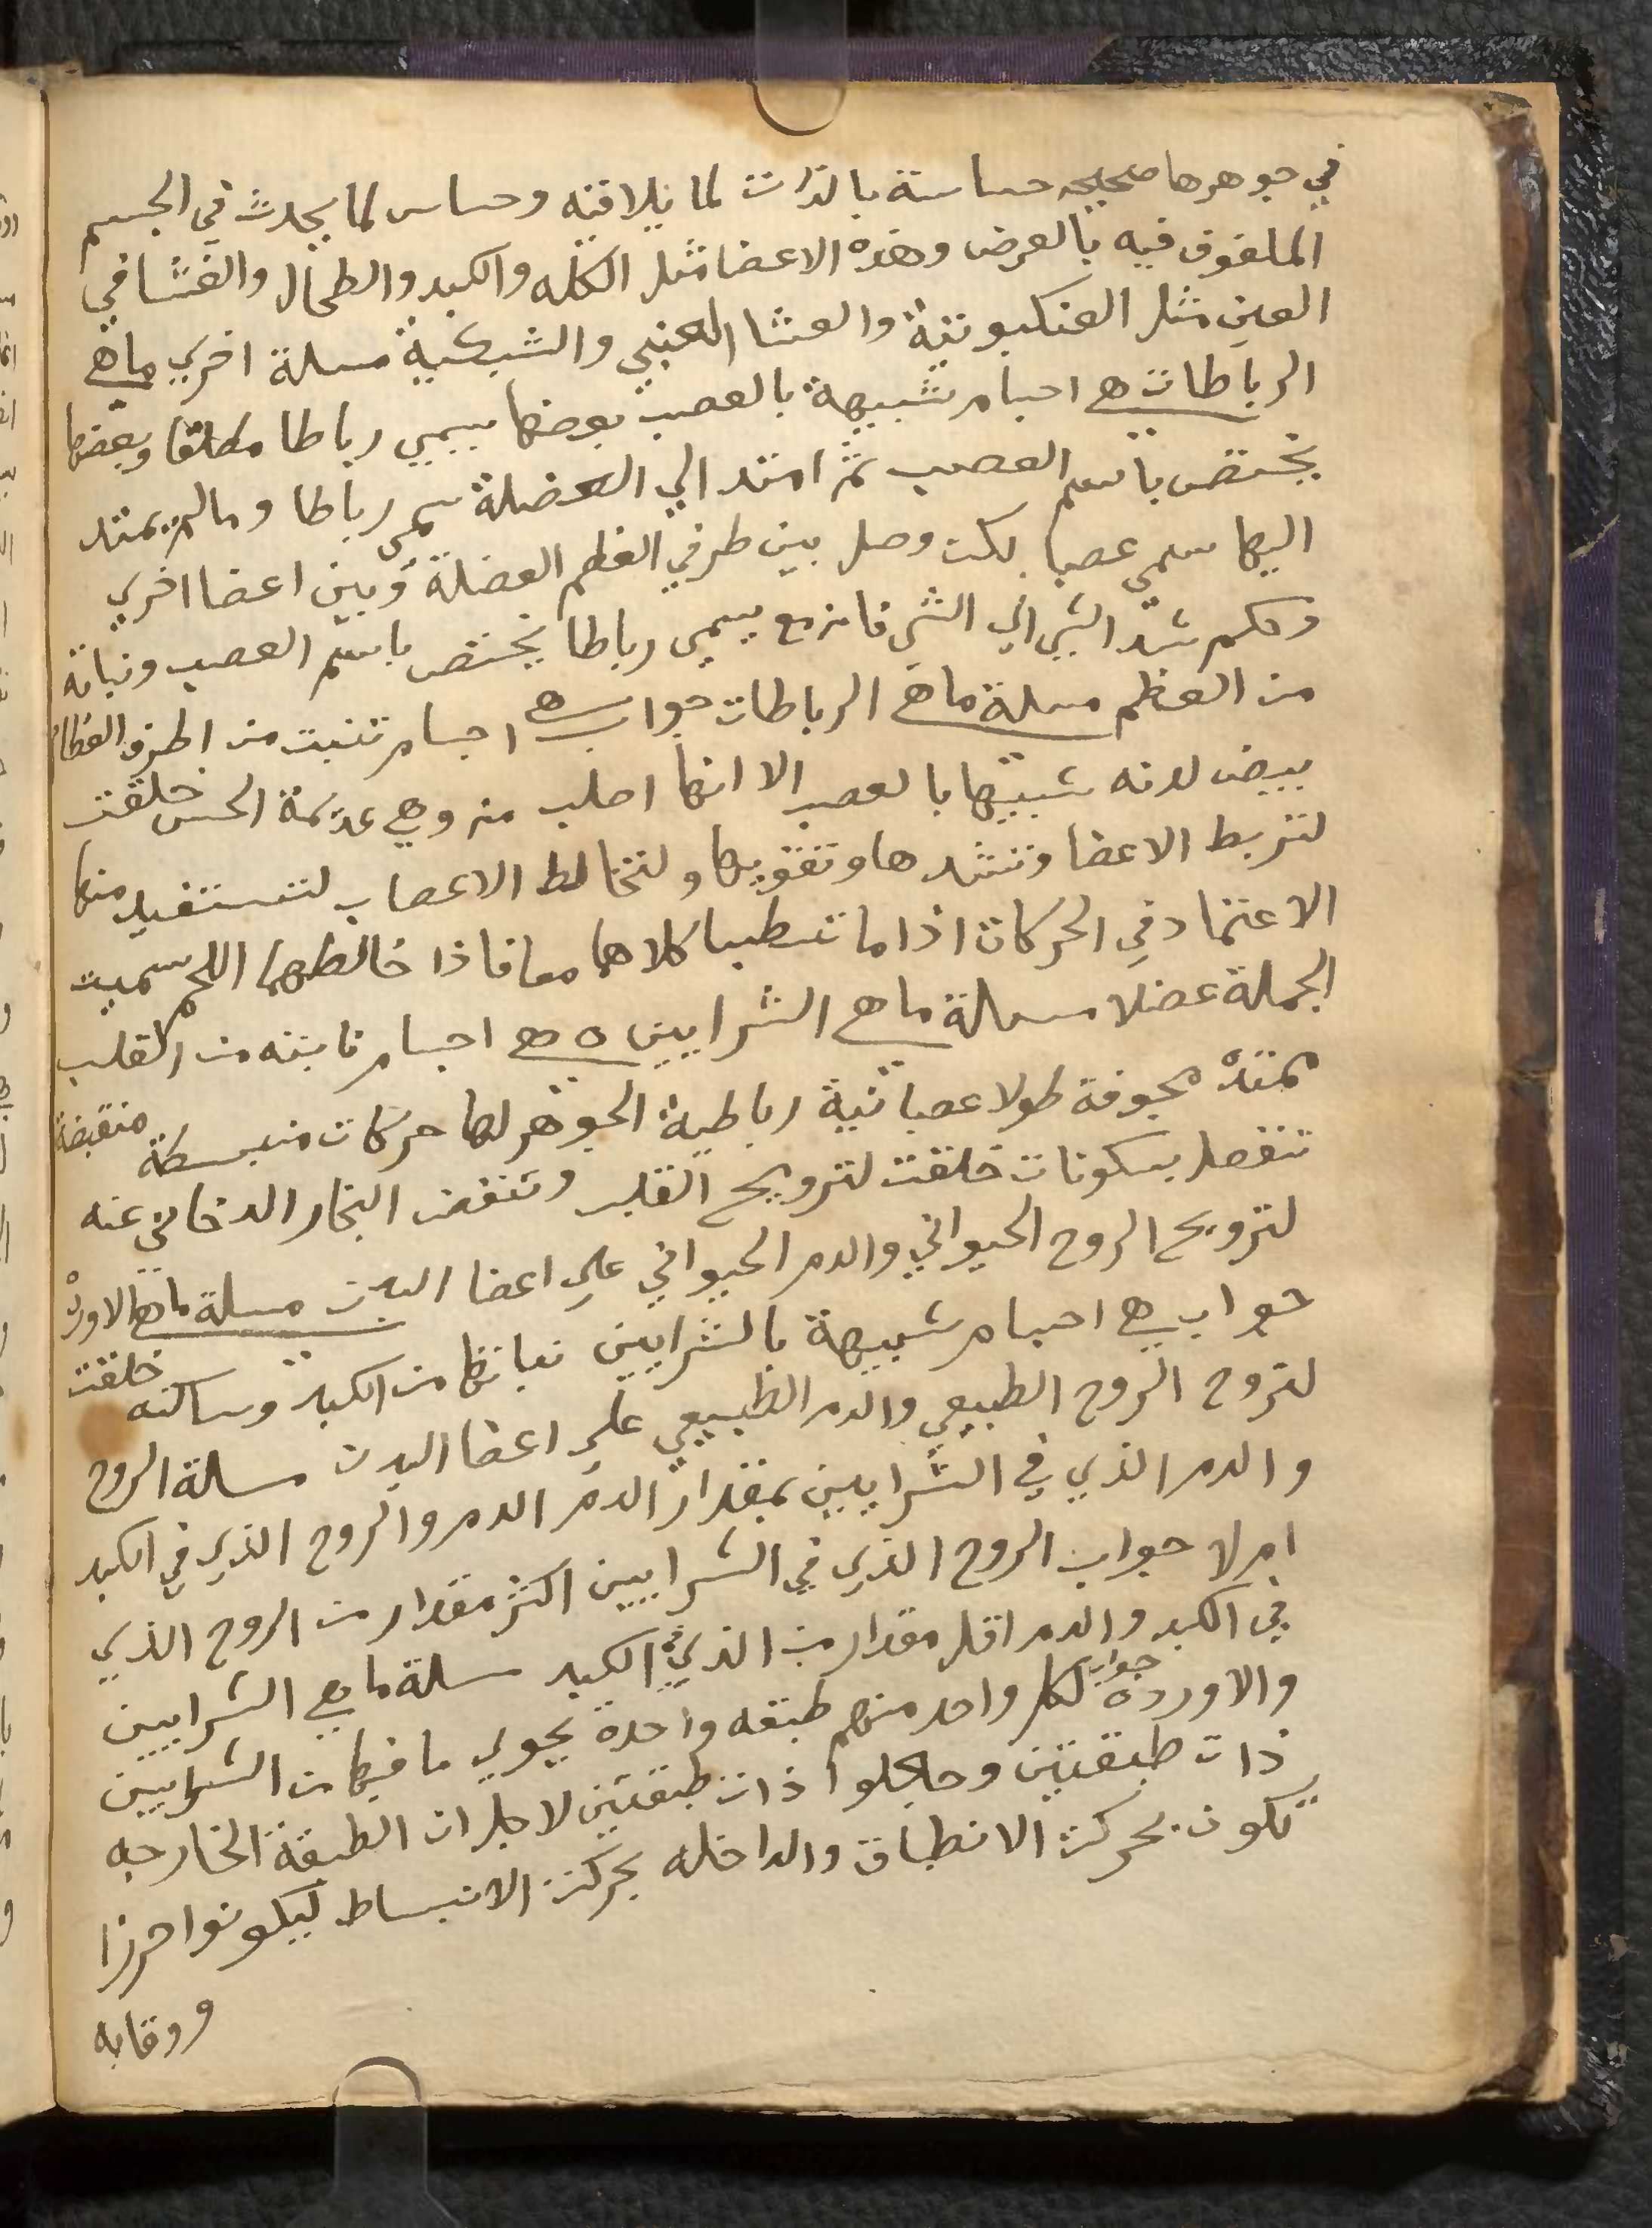 في جوهرها صحيحه حساسة بالذات لما يلاقيه وحساس لما يحدث في الجسم
الملفوف فيه بالعرض وهذه الاعضا مثل الكله والكبد والطحال والغشا في
العين مثل العنكبوتية والغشا العنبي والشبكية مسلة اخري ماهي
الرباطات هي اجسام شبيهة بالعصب بعضها يسمي رباطا مطلقا وبعضها
يختص باسم العصب ثم امتد الي العضلة سمي رباطا ومالم يمتد
اليها سمي عصبا لكن وصل بين طرفي العظم العضلة وبين اعضا اخري
وحكم شد الشي الي الشي فانه مع يسمى رباطا يختص باسم العصب ونباته
من العظم مسلة ماهي الرباطات جواب هي اجسام تنبت من اطرف العظام
بيض لدنه شبيها بالعصب الا انها اصلب منه وهي عديمة الحس خلقت
لتربط الاعضا وتشدها وتقويها ولتخالط الاعصاب لتستفيد منها
الاعتماد في الحركات اذا ما تشظيا كلاهما معا فاذا خالطهما اللحم سميت
الجملة عضلا مسالة ماهي الشرايين ه هي اجسام نابته من القلب
ممتدة مجوفة طولا عصبانية رباطية الجوهر لها حركات منبسطة منقبضة
تنفصل بسكونات خلقت لترويح القلب وتنفض البخار الدخاني عنه
لترويح الروح الحيواني والدم الحيواني علي اعضا البدن مسلة ماهي الاوردة
جواب هي اجسام شبيهة بالشرايين نباتها من الكبد وساكنه خلقت
لتروح الروح الطبيعي والدم الطبيعي علي اعضا البدن مسالة الروح
والدم الذي في الشرايين بمقدار الدم الدم والروح الذي في الكبد
ام لا جواب الروح الذي في الشرايين اكثر مقدار من الروح الذي
في الكبد والدم اقل مقدار من الذي في الكبد مسلة ماهي الشرايين
والاوردة جواب لكل واحد منهم طبقه واحدة يحوي ما فيها من الشرايين
ذات طبقتين وجعلوا ذات طبقتين لاجل ان الطبقة الخارجه
تكون بحركة الانطباق والداخله بحركة الانبساط ليكونوا حرزا
ووقايه